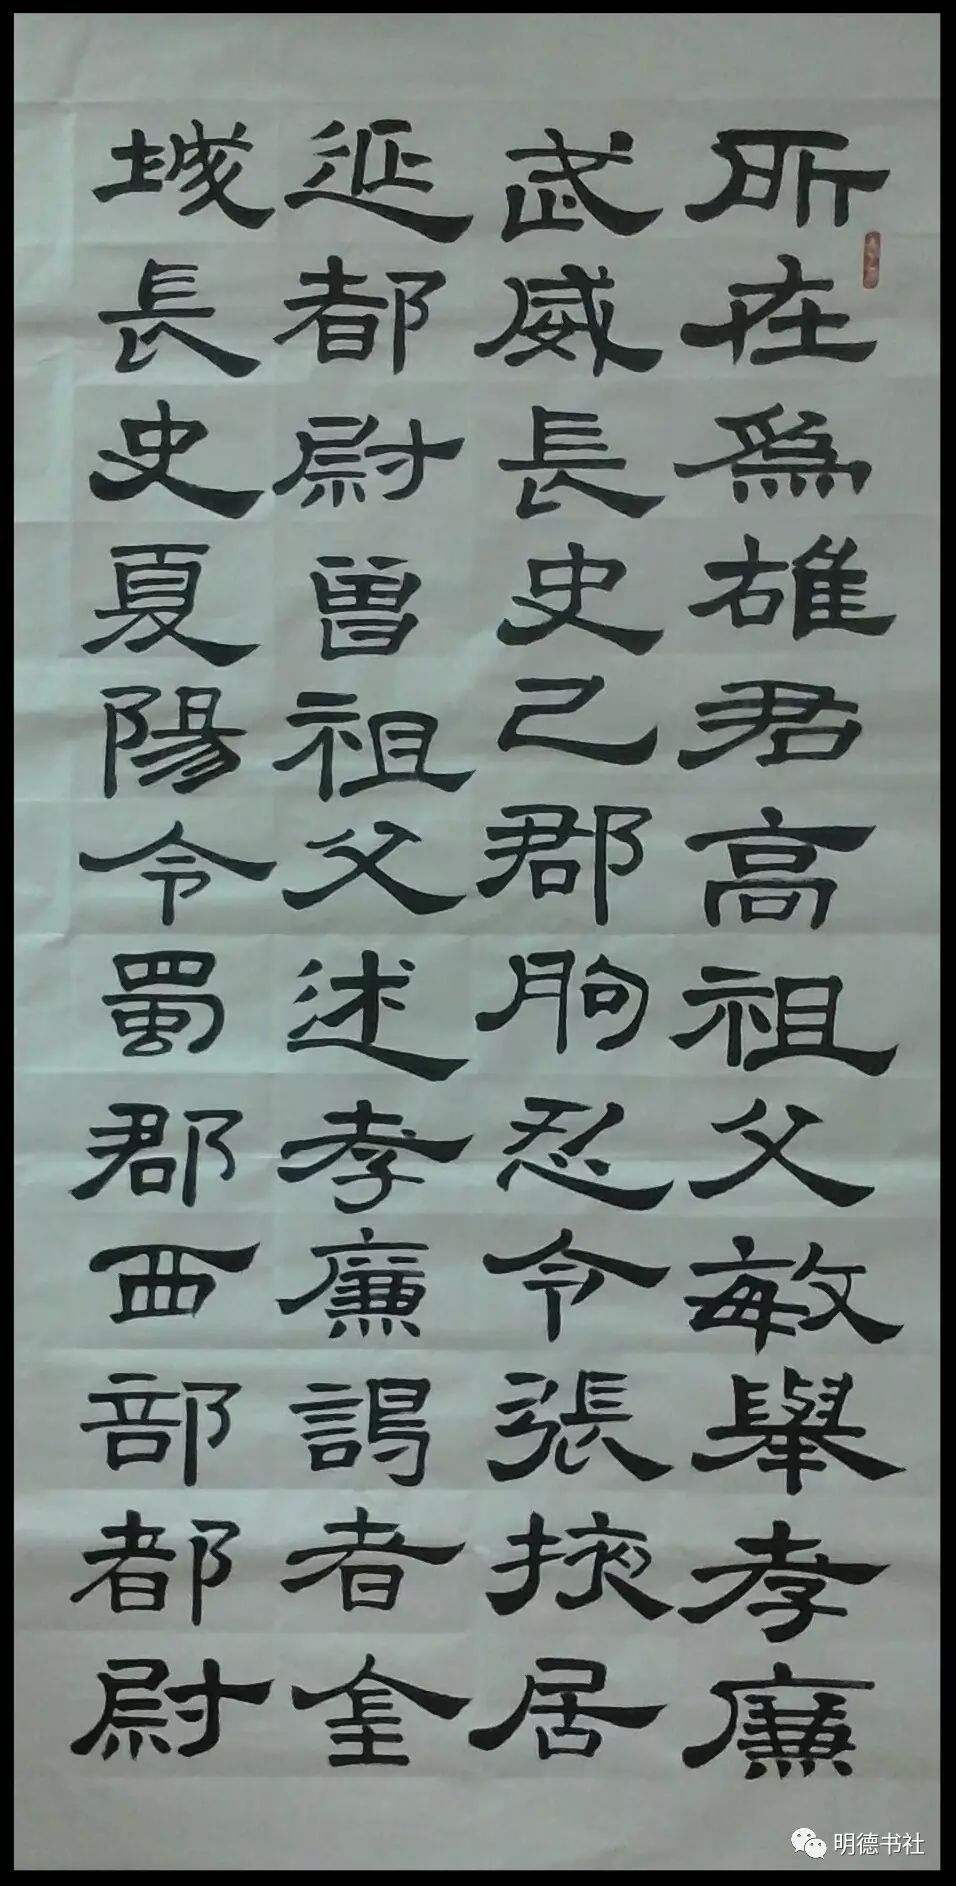 所在為雄君高祖父敏舉孝廉
武威長史己郡朐忍令張掖居
延都尉曾祖父述孝廉謁者金
城長史夏陽令蜀郡西部都尉
明德书社